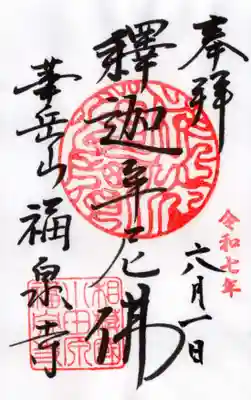 奉拝
令和七年
六月一日
釋迦牟尼佛
華岳山
福泉寺